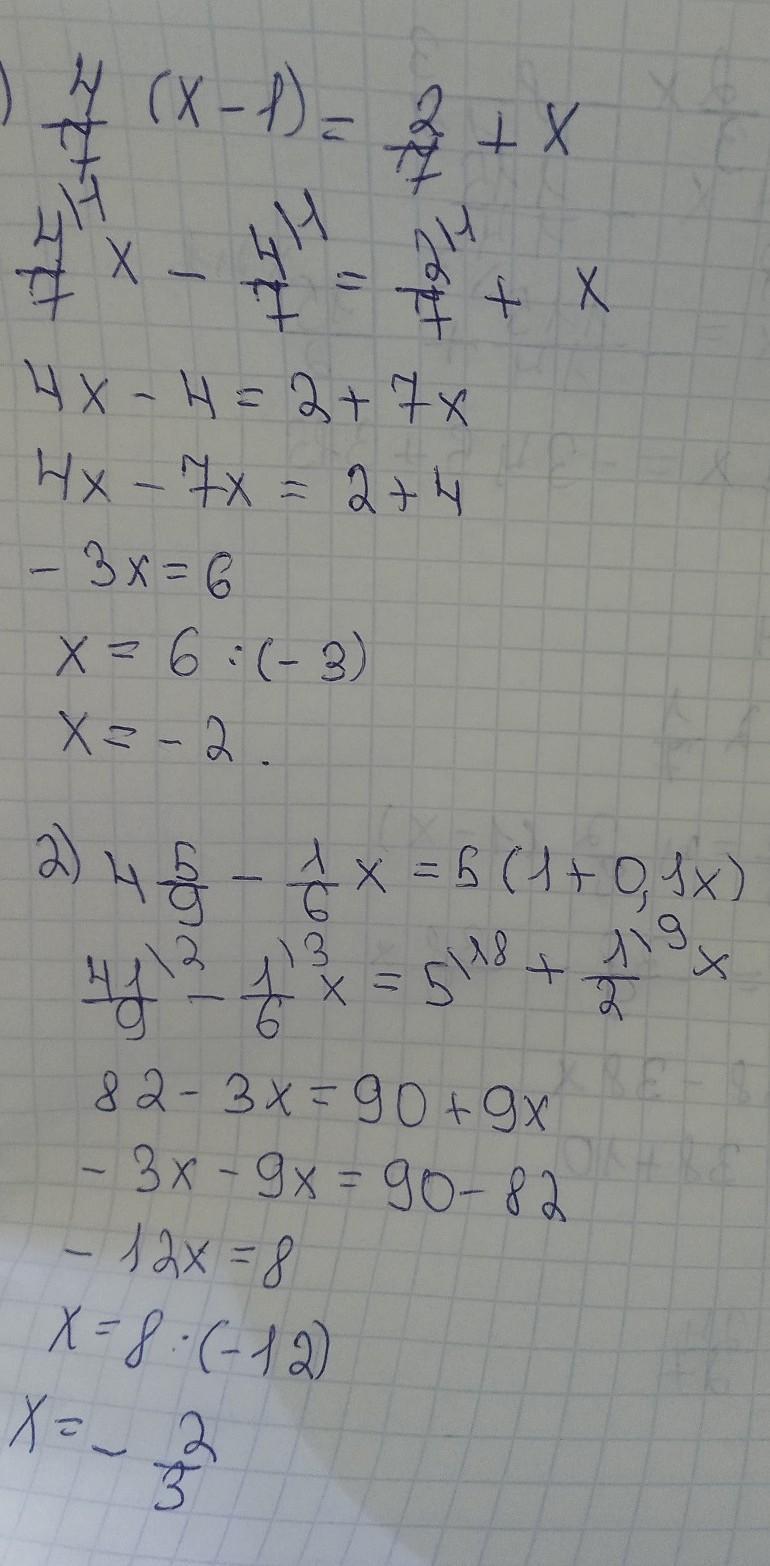 ) 4/7 (x - 1) = 2/7 + x
4/7\1 x - 4/7\1 = 2/7\1 + x
4x - 4 = 2 + 7x
4x - 7x = 2 + 4
- 3x = 6
x = 6 : (- 3)
x = - 2 .
2) 4 5/9 - 1/6 x = 5 (1 + 0,1x)
41/9\2 - 1/6\3 x = 5\18 + 1/2\9 x
82 - 3x = 90 + 9x
- 3x - 9x = 90 - 82
- 12x = 8
x = 8 : (-12)
x = - 2/3